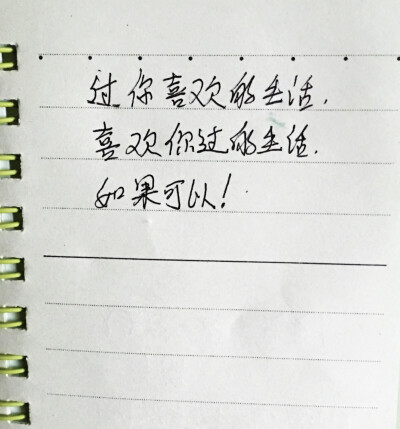 过你喜欢的生活.
喜欢你过的生活.
如果可以!